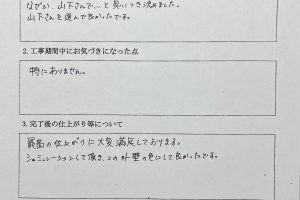 なぜか、山下さんで…と思いつき決めました。
山下さんを選んで良かったです。
2. 工事期間中にお気づきになった点
特にありません。
3. 完了後の仕上がり等について
最高の仕上がりに大変満足しております。
シュミレーションして頂き、この外壁の色にして良かったです。